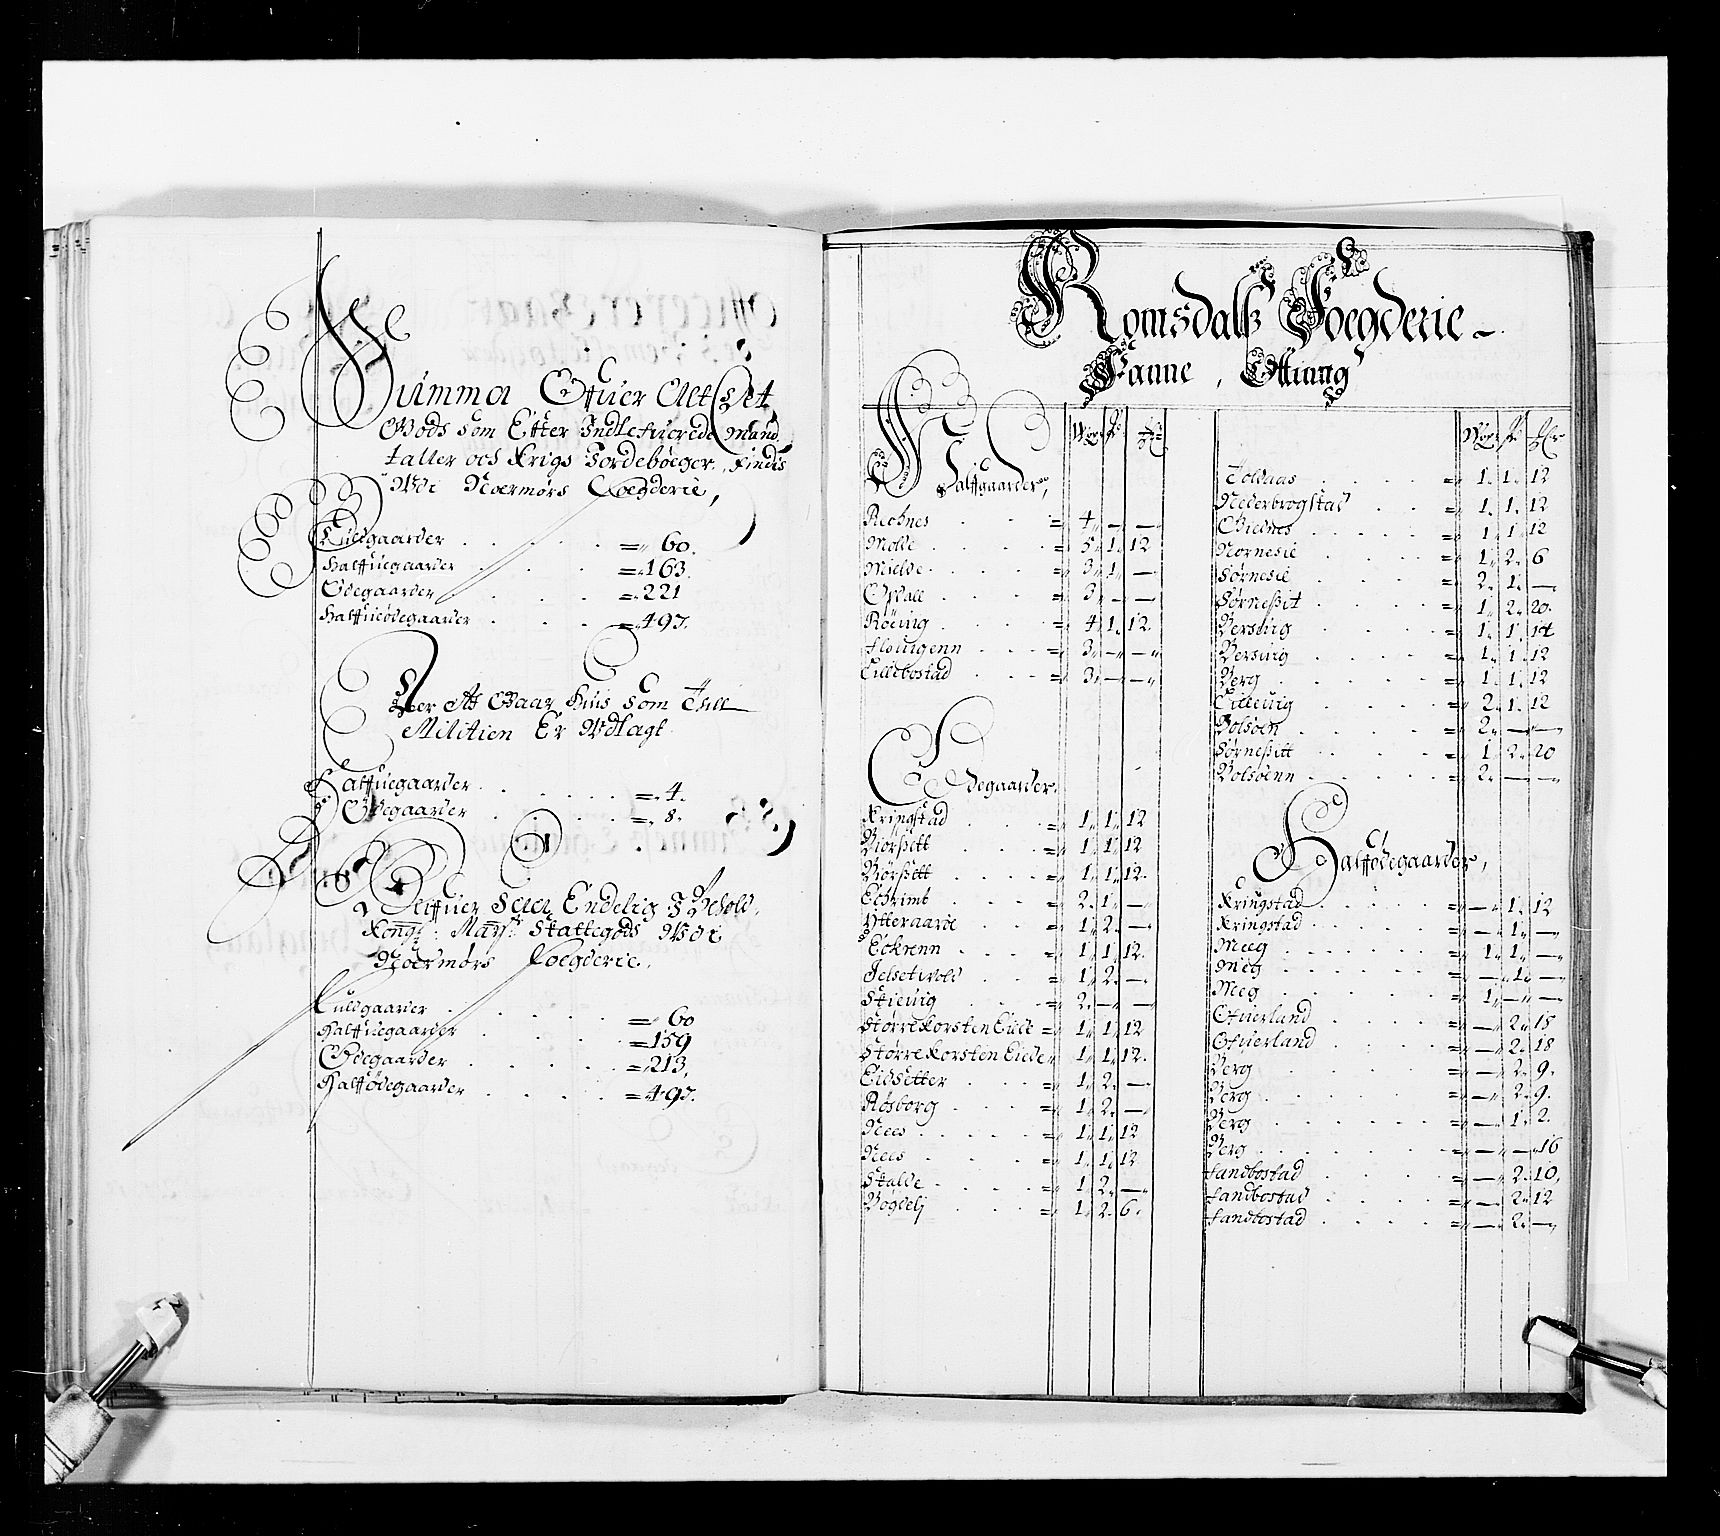 Summa Offuer Alt Det
Gods som Efter Indlefuerede Mand
taller och Krigs Jordebøeger, findis
Wdi Noermørs Foegderie,
Fuldgaarder = 60.
Halffuegaarder = 163.
Ødegaarder = 221
Halffueødegaarder = 497.
Der Af Gaar Huis Som Till
Militien Er Wdlagt
Halffuegaarder = 4.
Ødegaarder = 8.
Offuer Endelig I Behold,
Kongl: Mayst: Skattegods Wdi
Noermørs Foegderie.
Fuldgaarder = 60
Halffuegaarder = 159
Ødegaarder = 213,
Halffødegaarder = 497.
Romsdalß Foegderie
Fanne Otting
Halffgaarder,
Rechnes = 4. — —
Molde = 5. 1. 12
Mielde = 3. 1. —
Opdall = 3. — —
Røeuig = 4. 1. 12.
Hougenn = 3. — —
Lillebostad = 3. — —
Ødegaarder.
Kringstad = 1. 1. 12
Biørßett = 1. 1. 12
Biørßett = 1. 1. 12.
Echrimb = 2. 1. —
Ytteraarøe = 1. 2. —
Eckrenn = 1. 1. 12.
Jelsetwold = 1. 2. —
Skieuig = 2. — —
Størrekorsten Eide = 1. 1. 12
Størrekorsten Eide = 1. 1. 12.
Eidsetter = 1. 2. —
Røsborg = 1. 2. —
Nees = 1. 1. 12
Nees = 1. 1. 12
Skalde = 1. 2. —
Bøgdelj = 1. 2. 6.
Toldaas = 1. 1. 12
Nederbrogstad = 1. 1. 12
Gielnes = 1. 1. 12
Nornesie = 1. 2. 6
Sørnesie = 2. 1. —
Sørneßit = 1. 2. 20.
Bersuig = 1. 1. 14
Bersuig = 1. 1. 12
Berg = 1. 1. 12
Lilleuig = 2. 1. 12
Bolsøen = 2. — —
Sørneßitt = 1. 2. 20
Bolsøenn = 2. — —
Halffødegaarder,
Kringstad = — 1. 12
Kringstad = — 1. —
Meeg = 1. 1. —
Meg = — 1. —
Meeg = 1. — —
Ofuerland = — 2. 15
Ofuerland = — 2. 18
Berg = — 2. 9.
Berg = — 2. 9.
Berg = — 1. 2.
Berg = — — 16
Handbostad = — 2. 10,
Handbostad = — 2. 12
Handbostad = — 2. —